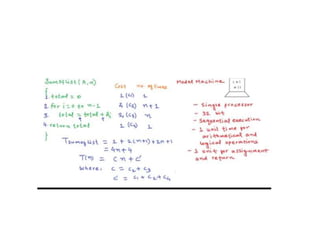 SumOfList(A,n)
{
1 total = 0
2 for i=0 to n-1
3 total = total + Ai
4 return total
}
Cost no of times
1 (C1) 1
2 (C2) n+1
2 (C3) n
1 (C4) 1
TSumOfList = 1 + 2(n+1) + 2n + 1
= 4n + 4
T(n) = Cn + C'
Where: C = C2 + C3
C' = C1 + C2 + C4
Model Machine
- Single processor
- 32 bit
- Sequential execution
- 1 unit time for
arithmatical and
logical operations
- 1 unit for assignment
and return